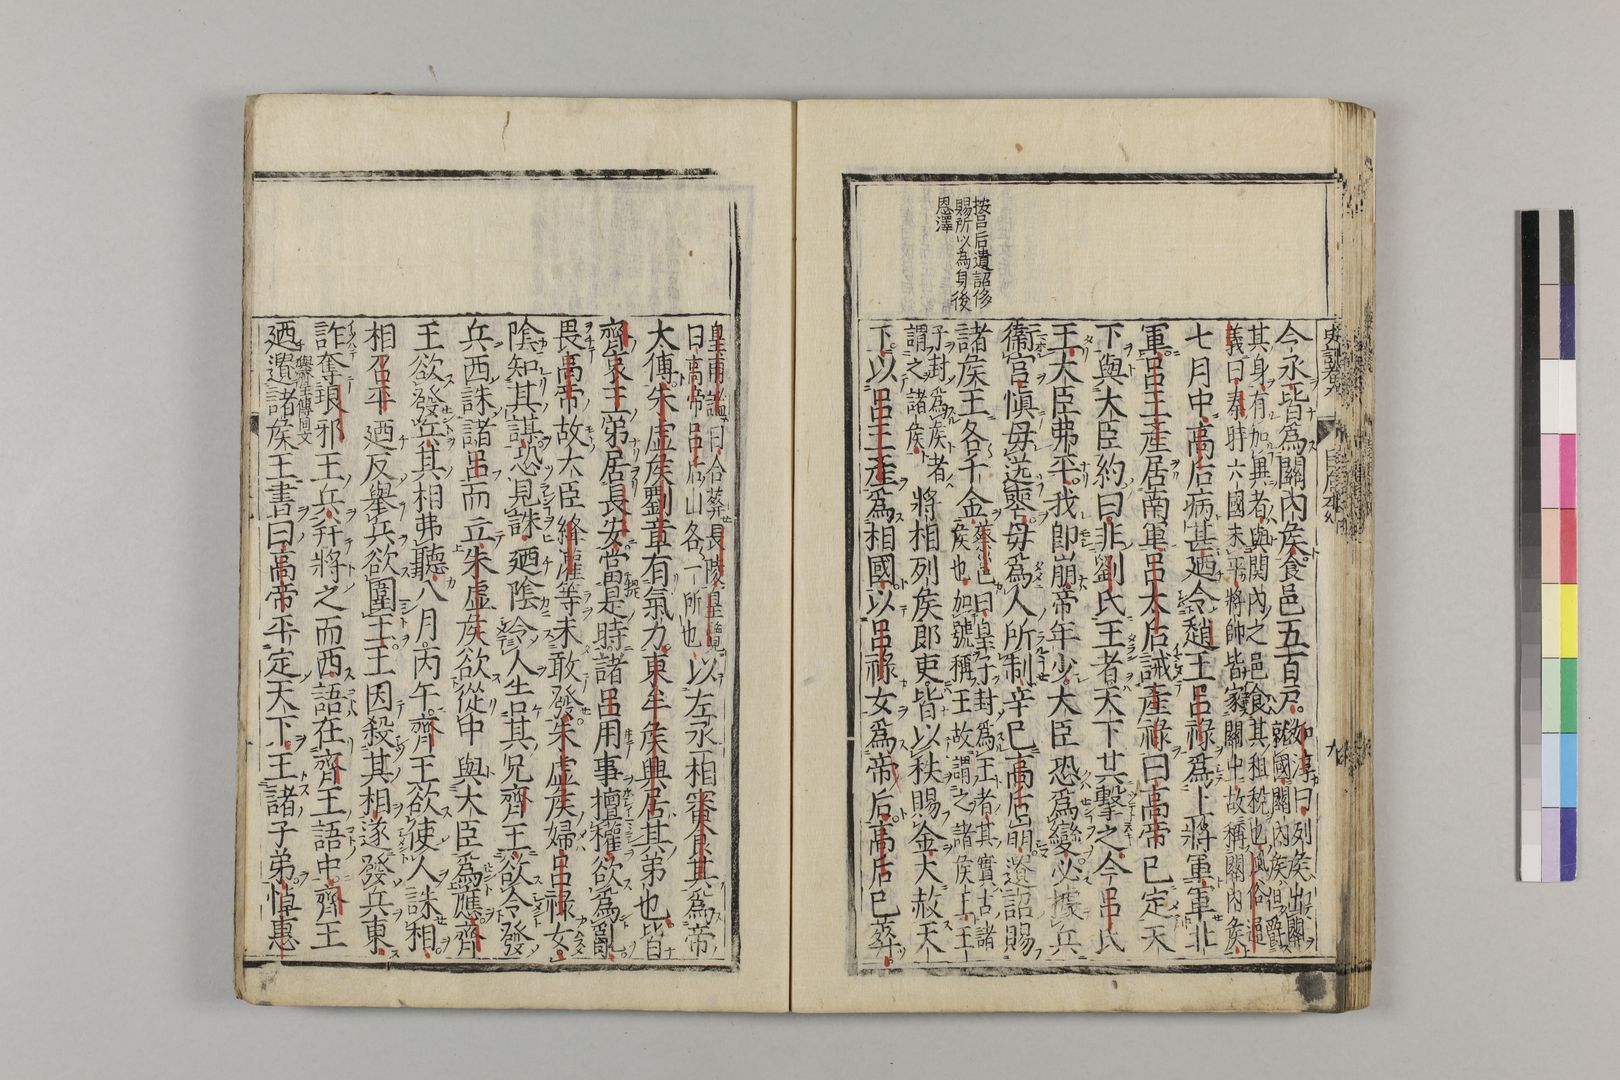 按呂后遺詔侈
賜所以為身後
恩澤
令丞皆爲關內矦食邑五百戶
如淳曰列矦出關
就國關內矦但爵
其身有加異者與関內之邑食其租稅也風俗通
義曰秦時六國未平將帥皆家關中故稱關內矦
七月中高后病甚廼令趙王呂祿爲上將軍軍北
軍呂王產居南軍呂太后誡產祿曰高帝已定天
下與大臣約曰非劉氏王者天下共擊之今呂氏
王大臣弗平我即崩帝年少大臣恐爲變必據兵
衞宮愼毋送喪毋爲人所制辛巳高后崩遺詔賜
諸矦王各千金
蔡邕曰皇子封爲王者其實古諸
矦也加號稱王故謂之諸矦王王
子封爲矦者
謂之諸矦
將相列矦郎吏皆以秩賜金大赦天
下以呂王產爲相國以呂祿女爲帝后高后已葬
皇甫謐曰合葬長陵皇覽
曰高帝呂后山各一所也
以左丞相審食其爲帝
太傅朱虛矦劉章有氣力東牟矦興居其弟也皆
齊哀王弟居長安當是時諸呂用事擅權欲爲亂
畏高帝故大臣絳灌等未敢發朱虛矦婦呂祿女
陰知其謀恐見誅廼陰令人告其兄齊王欲令發
兵西誅諸呂而立朱虛矦欲從中與大臣爲應齊
王欲發兵其相弗聽八月丙午齊王欲使人誅相
相召平廼反舉兵欲圍王王因殺其相遂發兵東
詐奪琅邪王兵幷將之而西語在齊王語中齊王
廼遺諸矦王書曰高帝平定天下王諸子弟悼惠